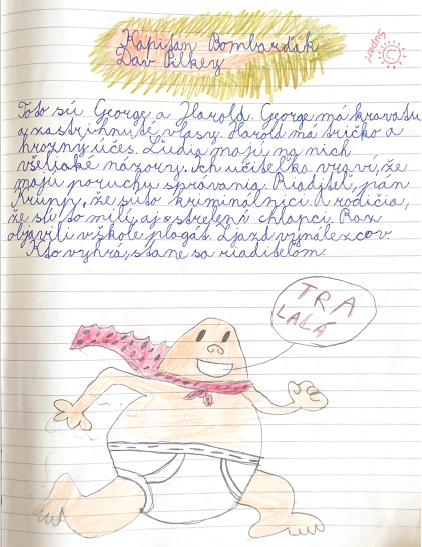 Kapitán Bombarďák
Dav Pilkey
Super!
Toto sú George a Harold. George má kravatu
a zastrihnuté vlasy. Harold má tričko a
hrozný účes. Ľudia majú na nich
všelijaké názory. Ich učiteľka vraví, že
majú poruchu správania. Riaditeľ, pán
Krupp, že sú to kriminálnici. A rodičia,
že sú to milí, aj strelení chlapci. Raz
objavili v škole plagát. Zjazd vynálezcov.
Kto vyhrá, stane sa riaditeľom.
TRA
LALÁ